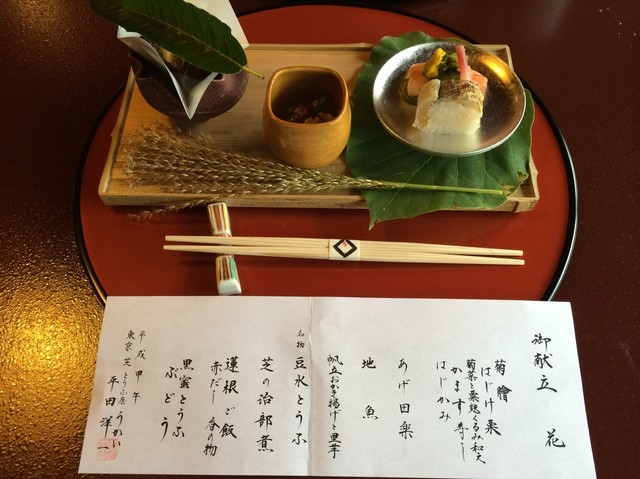 御献立　花
菊鱠
はじけ栗
菊菜と栗麩くるみ和え
かます寿し
はじかみ
あげ田楽
地魚
帆立おかき揚げと里芋
名物　豆水とうふ
芝の治部煮
蓮根ご飯
赤だし　香の物
黒蜜とうふ
ぶどう
平成甲午
東京芝　とうふ屋うかい
平田洋一